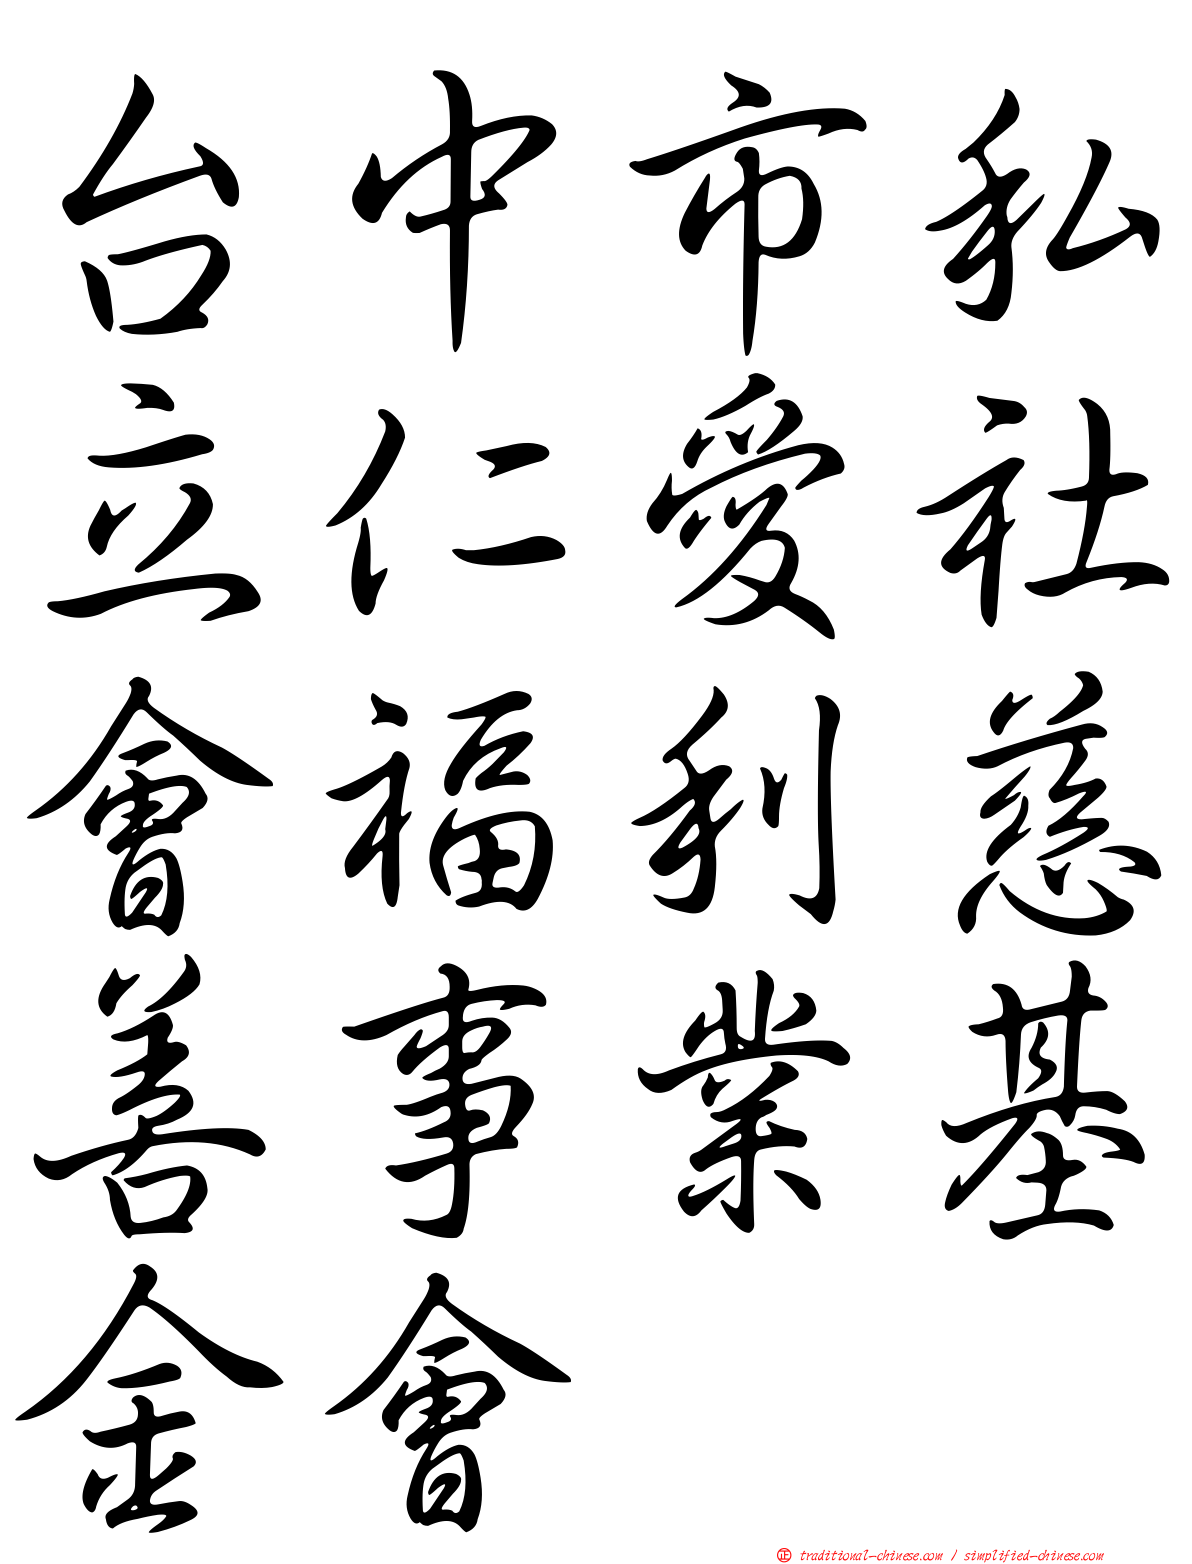 台中市私
立仁愛社
會福利慈
善事業基
金會
㊣ traditional-chinese.com / simplified-chinese.com